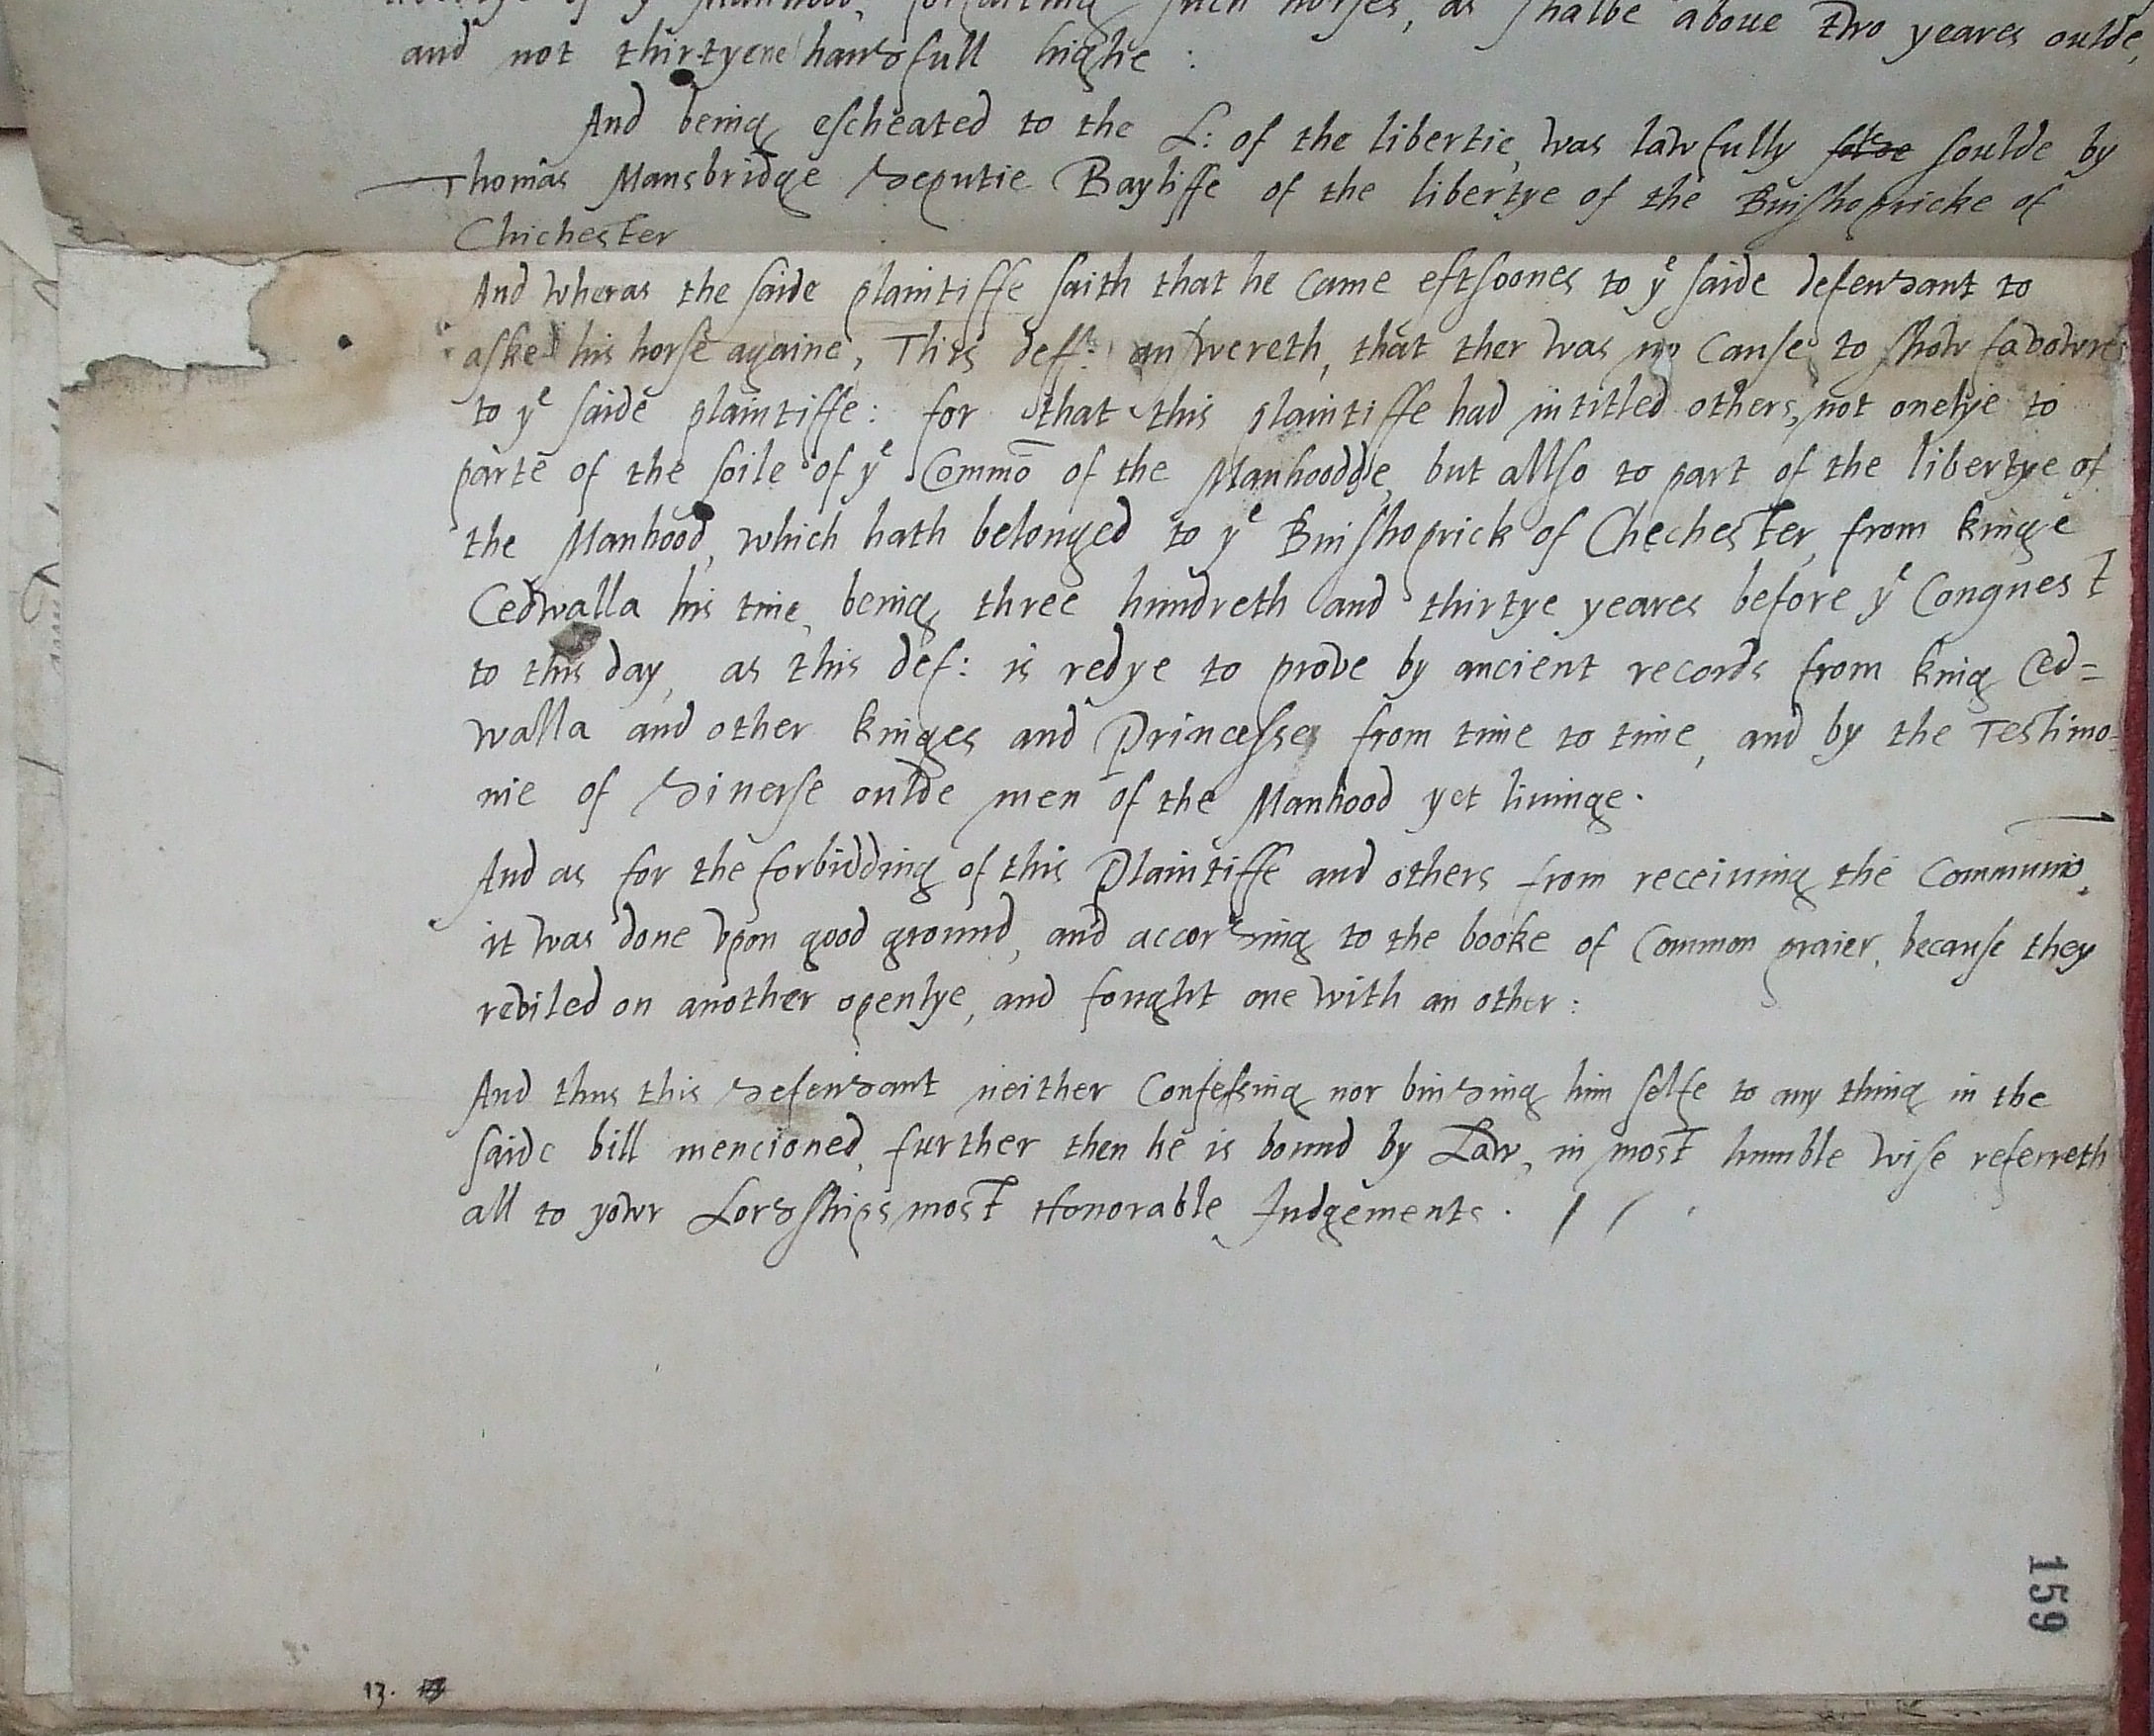 of yͤ Manhood, forfaiting such horses, as shalbe aboue two yeares oulde,
and not thirtyene handfull highe :
And being escheated to the L: of the libertie, was lawfully solde soulde by
Thomas Mansbridge deputie Bayliffe of the libertye of the Buishopricke of
Chichester
And wheras the saide plaintiffe saith that he came eftsoones to yͤ saide defendant to
aske his horse againe, This def: answereth, that ther was no cause to show favowre
to yͤ saide plaintiffe: for that this plaintiffe had intitled others, not onelye to
parte of the soile of yͤ Commō of the Manhoodde, but allso to part of the libertye of
the Manhood, which hath belonged to yͤ Buishoprick of Chechester, from kinge
Cedwalla his time, being three hundreth and thirtye yeares before yͤ Conquest
to this day, as this def: is redye to prove by ancient records from king Ced=
walla and other kinges and Princesses from time to time, and by the Testimo=
nie of diuerse oulde men of the Manhood yet liuinge.
And as for the forbidding of this Plaintiffe and others from receiuing the Communiō,
it was done vpon good ground, and according to the booke of Common praier, because they
reviled on another openlye, and fought one with an other :
And thus this defendant neither Confessing nor binding him selfe to any thing in the
saide bill mencioned, further then he is bound by Law, in most humble wise referreth
all to yowr Lordships most Honorable Judgements.
159
13.